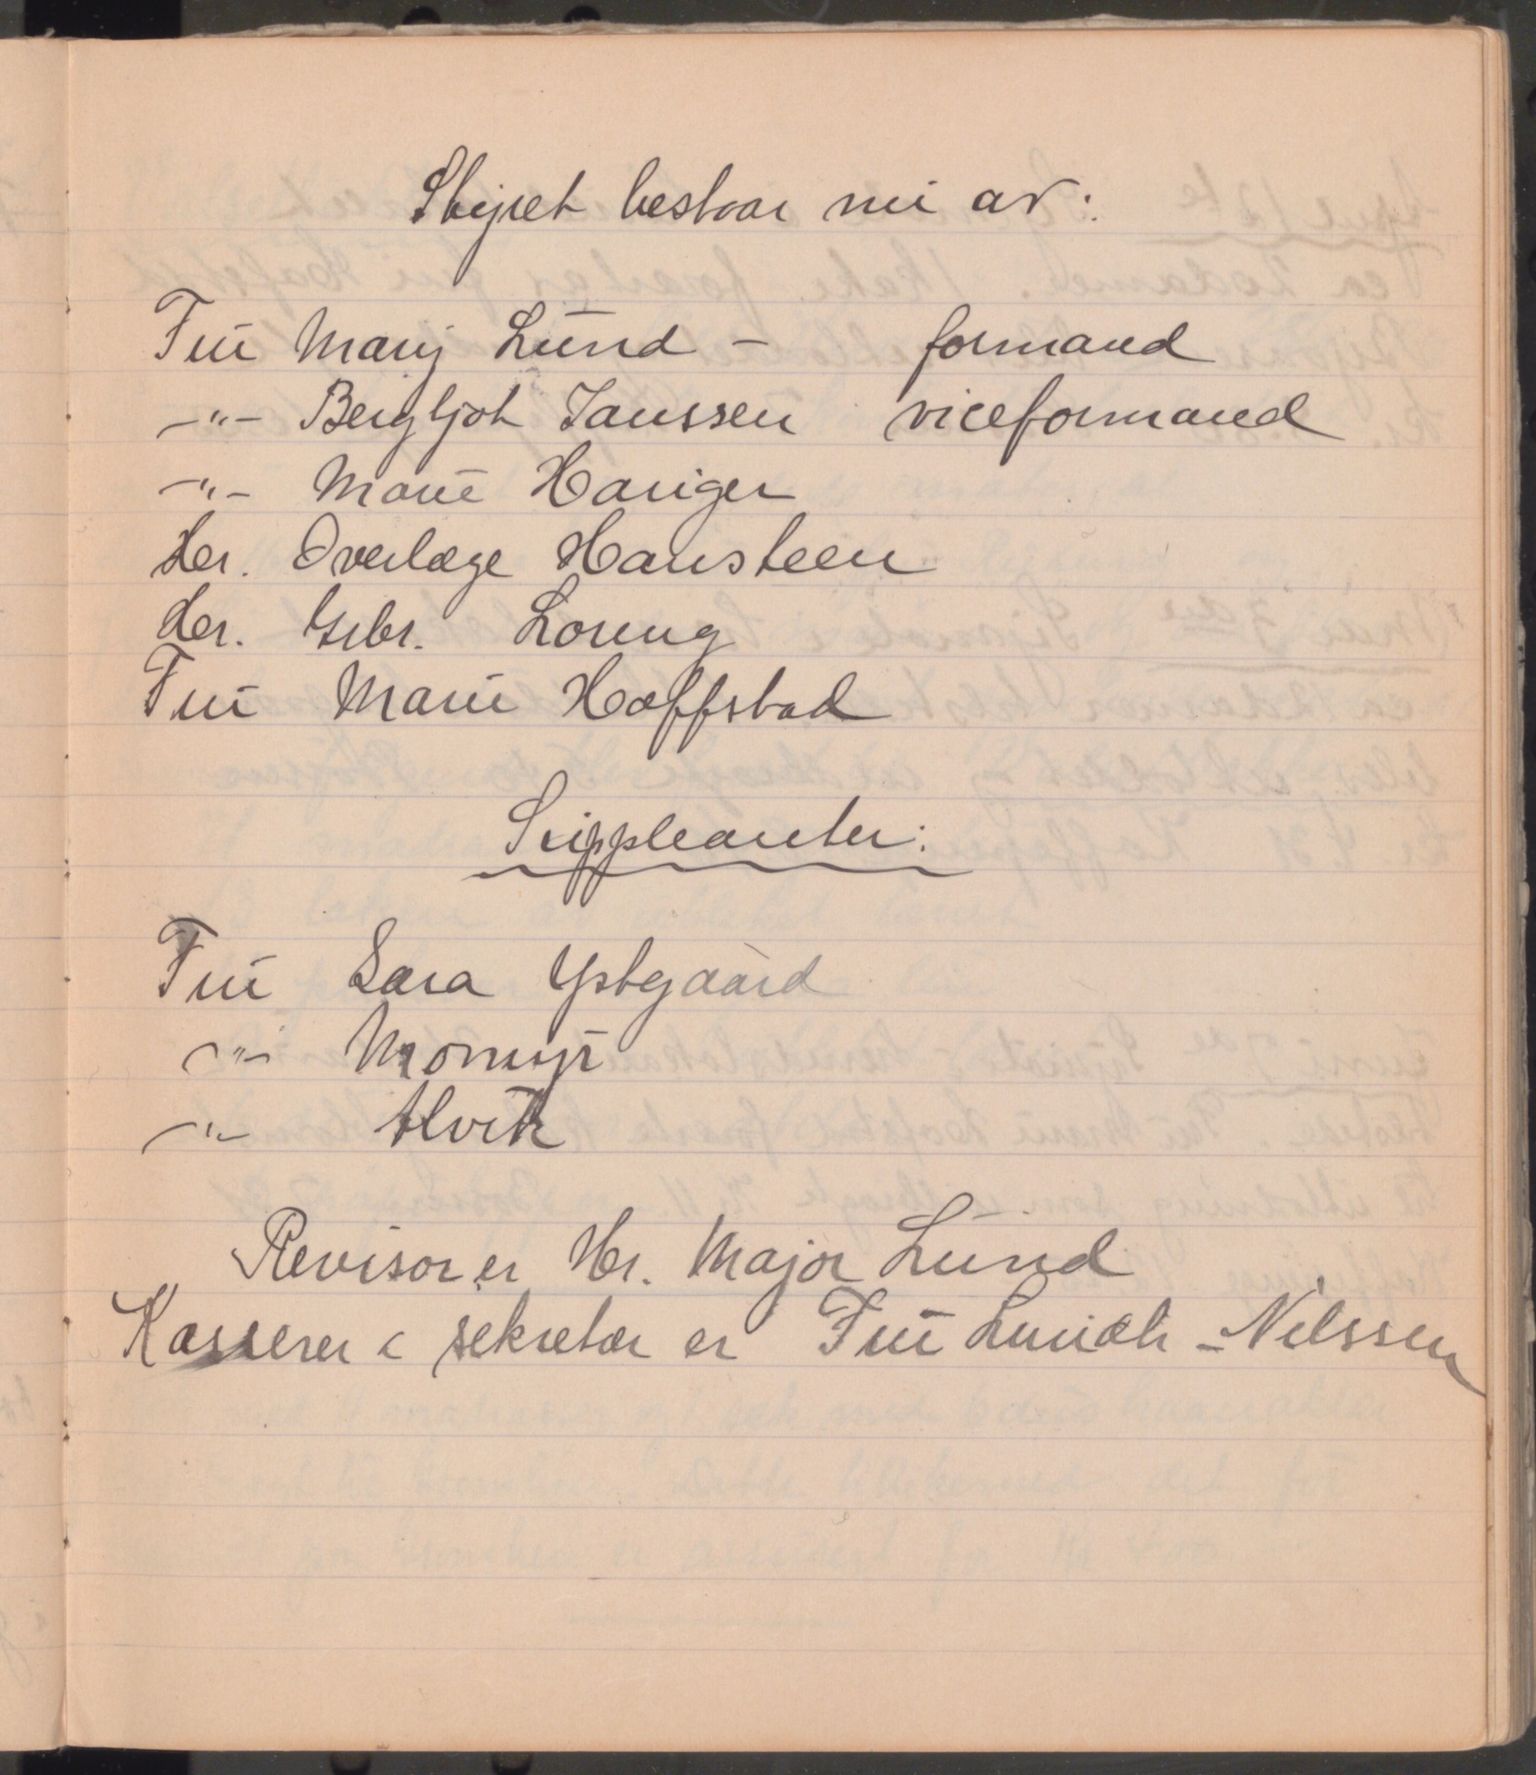 Styret bestaar nu av:
Fru Mary Lund - formand
-"- Bergljot Janssen viceformand
-"- Marie Hariger
Her. Overlæge Hansteen
Her. Grbr. Loring
Fru Marie Hoffstad
Suppleanter:
Fru Sara Ystgaard
-"- Momyr
-"- Alvik
Revisor er Hr. Major Lund
Kasserer & sekretær er Fru Lundh - Nilssen